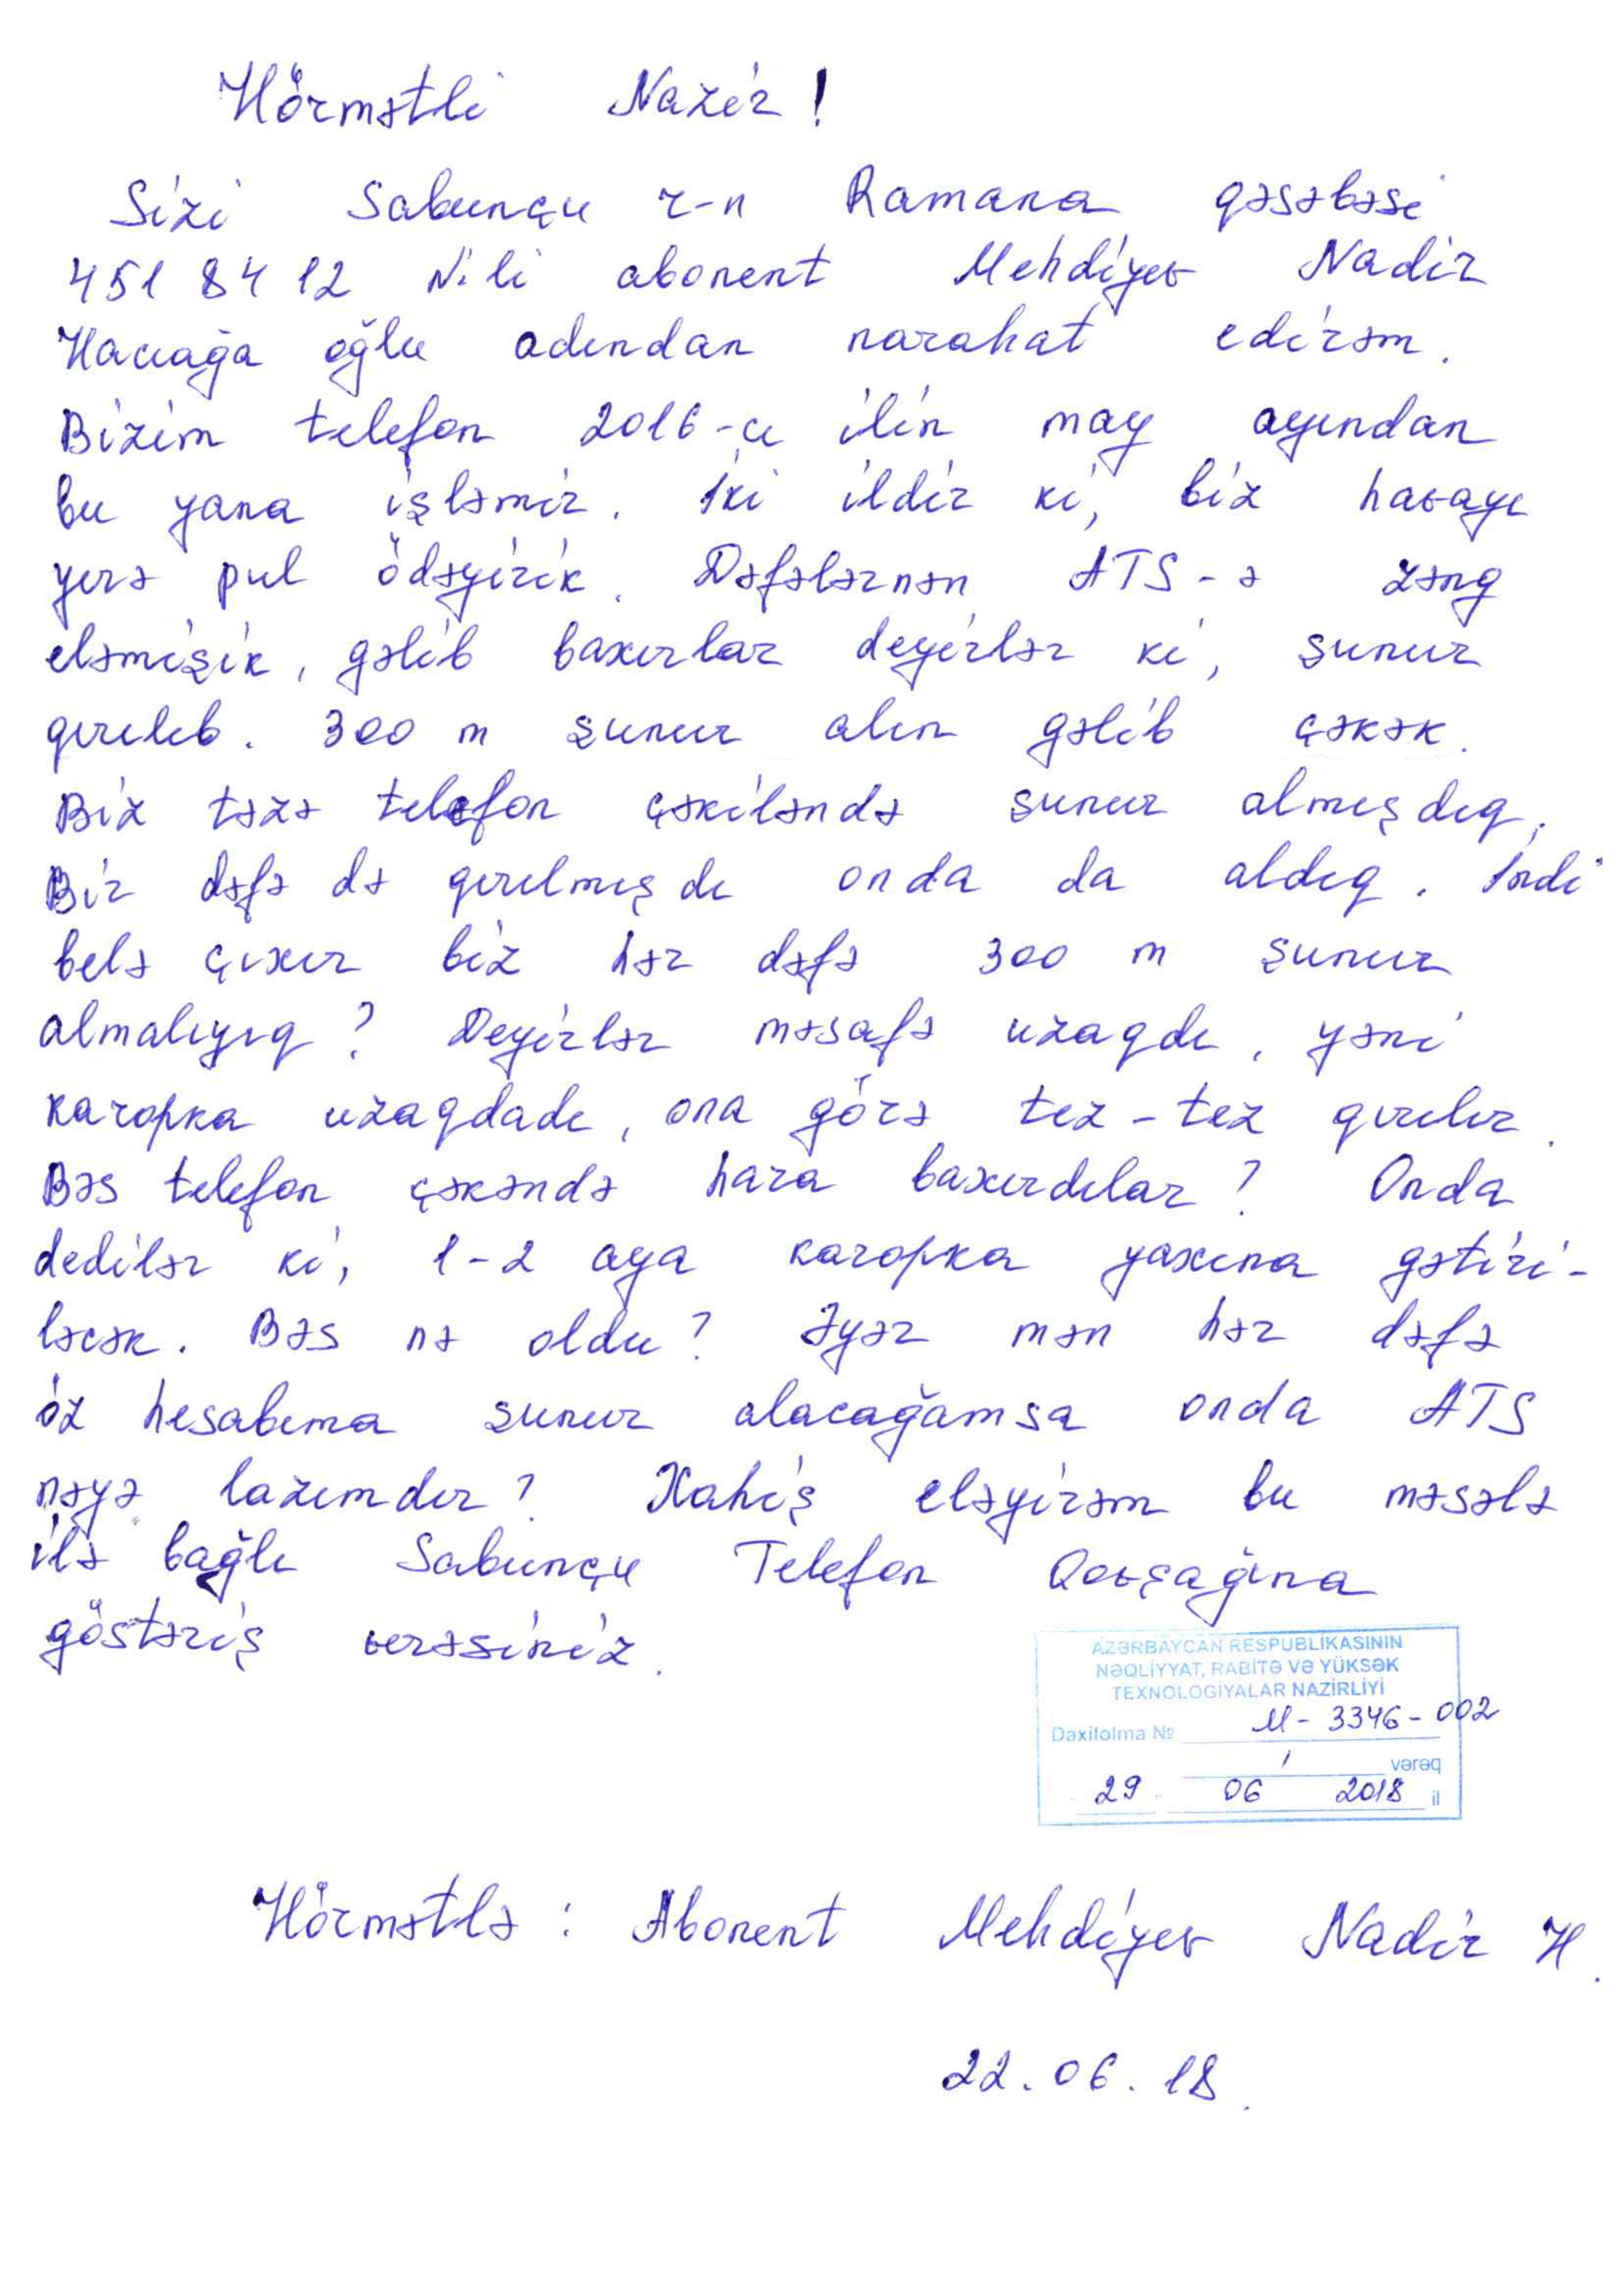 Hörmətli Nazir!
Sizi Sabunçu r-n Ramana qəsəbəsi
451 84 12 N:li abonent Mehdiyev Nadir
Hacıağa oğlu adından narahat edirəm.
Bizim telefon 2016-çı ilin may ayından
bu yana işləmir. İki ildir ki, biz havayı
yerə pul ödəyirik. Dəfələrnən ATS-ə zəng
eləmişik, gəlib baxırlar deyirlər ki, şunur
qırılıb. 300 m şunur alın gəlib çəkək.
Biz təzə telefon çəkiləndə şunur almışdıq.
Bir dəfə də qırılmışdı onda da aldıq. İndi
belə çıxır biz hər dəfə 300 m şunur
almalıyıq? Deyirlər məsafə uzaqdı, yəni
karopka uzaqdadı, ona görə tez-tez qırılır.
Bəs telefon çəkəndə hara baxırdılar? Onda
dedilər ki, 1-2 aya karopka yaxına gətiri-
ləcək. Bəs nə oldu? Əyər mən hər dəfə
öz hesabıma şunur alacağamsa onda ATS
nəyə lazımdır? Xahiş eləyirəm bu məsələ
ilə bağlı Sabunçu Telefon Qovşağına
göstəriş verəsiniz.
AZƏRBAYCAN RESPUBLİKASININ
NƏQLİYYAT, RABİTƏ VƏ YÜKSƏK
TEXNOLOGİYALAR NAZİRLİYİ
Daxilolma № M-3346-002
1 vərəq
29 06 2018 il
Hörmətlə: Abonent Mehdiyev Nadir H.
22.06.18.